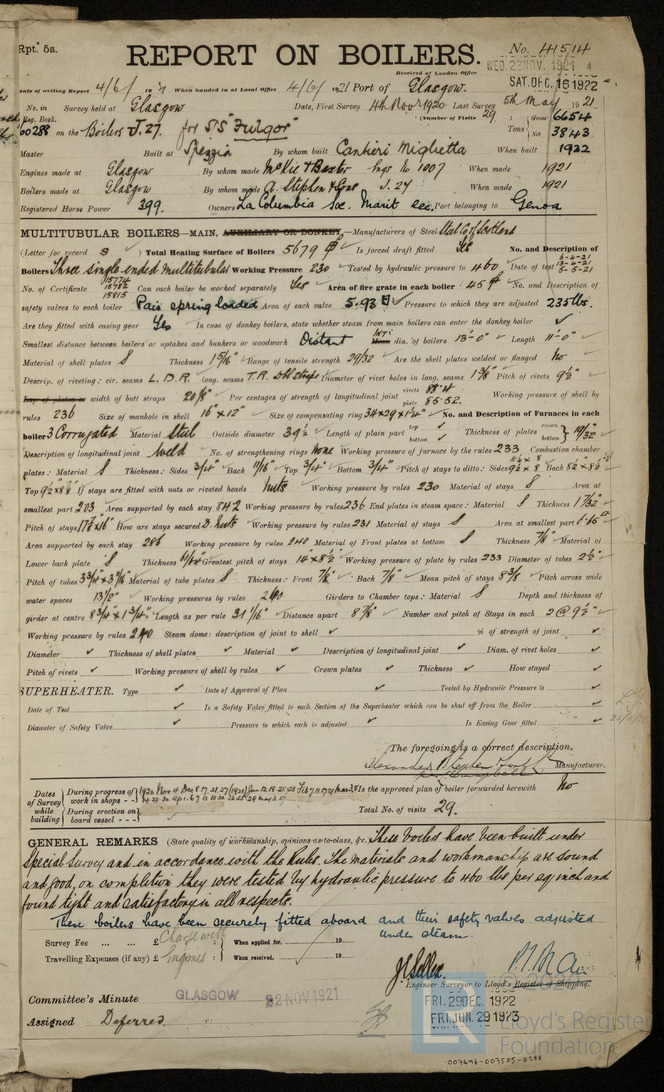 Rpt. 5a.
REPORT ON BOILERS.
No. 41514
Received at London Office WED. 23 NOV. 1921
SAT. DEC. 16 1922
Date of writing Report 4/6/ 1921 When handed in at Local Office 4/6/ 1921 Port of Glasgow.
No. in Reg. Book. Survey held at Glasgow Date, First Survey 4th Nov 1920 Last Survey 5th May 1921
(Number of Visits 29)
on the Boilers J. 27. for S/S "Fulgor" Tons Gross 6654 Net 3843
Master Built at Spezzia By whom built Cantieri Miglietta When built 1922
Engines made at Glasgow By whom made McKie & Baxter Engs No 1007 When made 1921
Boilers made at Glasgow By whom made A. Stephen & Sons J. 27 When made 1921
Registered Horse Power 399. Owners La Columbia Soc. Marit ecc. Port belonging to Genoa
MULTITUBULAR BOILERS – MAIN, AUXILIARY OR DONKEY.—Manufacturers of Steel Steel Co of Scotland
(Letter for record S) Total Heating Surface of Boilers 5679 Is forced draft fitted Yes No. and Description of
Boilers Three single ended multitubular Working Pressure 230 Tested by hydraulic pressure to 460 Date of test 6-4-21 13-4-21 5-5-21
No. of Certificate 15774 15782 15815 Can each boiler be worked separately Yes Area of fire grate in each boiler 45 No. and Description of
safety valves to each boiler Pair spring loaded Area of each valve 5.93 Pressure to which they are adjusted 235 lbs.
Are they fitted with easing gear Yes In case of donkey boilers, state whether steam from main boilers can enter the donkey boiler
Smallest distance between boilers or uptakes and bunkers or woodwork Distant dia. of boilers 13'-0" Length 11'-0"
Material of shell plates S Thickness 15/16" Range of tensile strength 29/32 Are the shell plates welded or flanged No
Descrip. of riveting: cir. seams L.D.R. long. seams T.R. Diameter of rivet holes in long. seams 1 3/8" Pitch of rivets 9 1/2"
Lap of plates or width of butt straps 20 Per centages of strength of longitudinal joint rivets plate 85.52. Working pressure of shell by
rules 236 Size of manhole in shell 16" x 12" Size of compensating ring No. and Description of Furnaces in each
boiler 3 Corrugated Material Steel Outside diameter 39 Length of plain part top bottom Thickness of plates crown bottom
Description of longitudinal joint Weld No. of strengthening rings None Working pressure of furnace by the rules 233 Combustion chamber
plates: Material S Thickness: Sides 3/4" Back 11/16" Top 3/4" Bottom 3/4" Pitch of stays to ditto: Sides 9 1/2 x 8 Back
Top If stays are fitted with nuts or riveted heads Nuts Working pressure by rules 230 Material of stays S Area at
smallest part 2.03 Area supported by each stay Working pressure by rules 236 End plates in steam space: Material S Thickness 1 7/32"
Pitch of stays How are stays secured D. Nuts Working pressure by rules 231 Material of stays S Area at smallest part
Area supported by each stay 286 Working pressure by rules 240 Material of Front plates at bottom S Thickness 7/8" Material of
Lower back plate S Thickness Greatest pitch of stays 14 x 8 1/2" Working pressure of plate by rules 233 Diameter of tubes 2 1/2"
Pitch of tubes Material of tube plates S Thickness: Front 7/8" Back 7/8" Mean pitch of stays Pitch across wide
water spaces 13 1/2" Working pressures by rules Girders to Chamber tops: Material S Depth and thickness of
girder at centre 8 3/4" x 1 3/4" Length as per rule 31 Distance apart 8 7/8" Number and pitch of Stays in each 2 @ 9 1/2"
Working pressure by rules 240 Steam dome: description of joint to shell % of strength of joint
Diameter Thickness of shell plates Material Description of longitudinal joint Diam. of rivet holes
Pitch of rivets Working pressure of shell by rules Crown plates Thickness How stayed
SUPERHEATER. Type Date of Approval of Plan Tested by Hydraulic Pressure to
Date of Test Is a Safety Valve fitted to each Section of the Superheater which can be shut off from the Boiler
Diameter of Safety Valve Pressure to which each is adjusted Is Easing Gear fitted
The foregoing is a correct description,
Alexander Stephen Manufacturer.
Dates of Survey while building During progress of work in shops - - 1920 Nov 4 Dec 8 17 Is the approved plan of boiler forwarded herewith No
During erection on board vessel - - - Total No. of visits 29.
GENERAL REMARKS (State quality of workmanship, opinions as to class, &c. These boilers have been built under
Special Survey and in accordance with the Rules. The materials and workmanship are sound
and good, on completion they were tested by hydraulic pressure to 460 lbs per sq inch and
found tight and satisfactory in all respects.
These boilers have been securely fitted aboard and their safety valves adjusted
under steam.
Survey Fee ... ... £ When applied for, 19
Travelling Expenses (if any) £ When received, 19
Engineer Surveyor to Lloyd's Register of Shipping.
Committee's Minute GLASGOW 22 NOV. 1921
FRI. 29 DEC. 1922
FRI. JUN. 29 1923
Assigned Deferred
LR
© 2021
Lloyd's Register
Foundation
007696-007505-0288